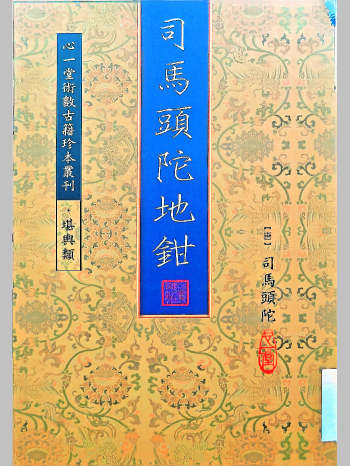 司馬頭陀地鉗
心一堂術數古籍珍本叢刊
·堪輿類
【唐】司馬頭陀